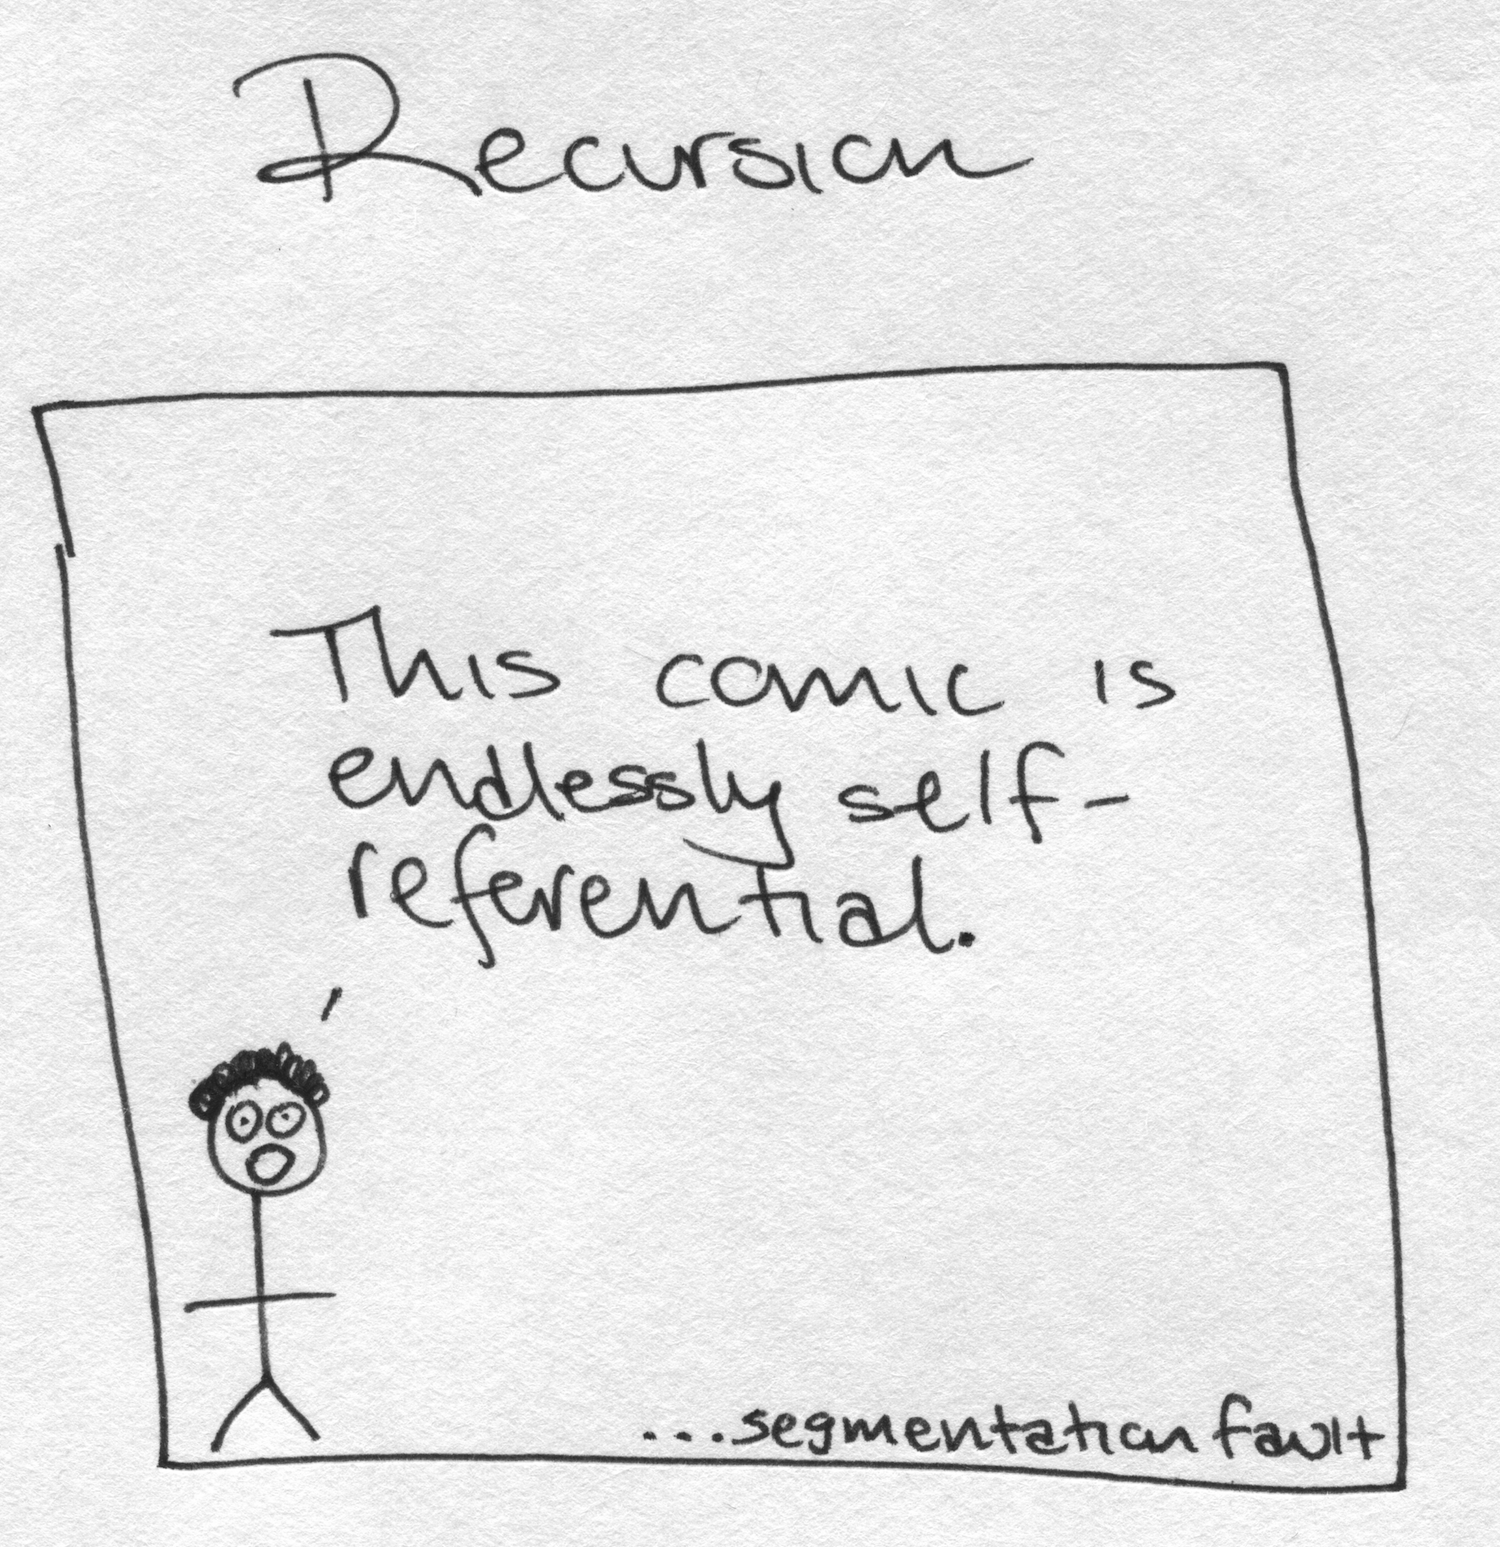 Recursion
This comic is
endlessly self-
referential.
...segmentation fault